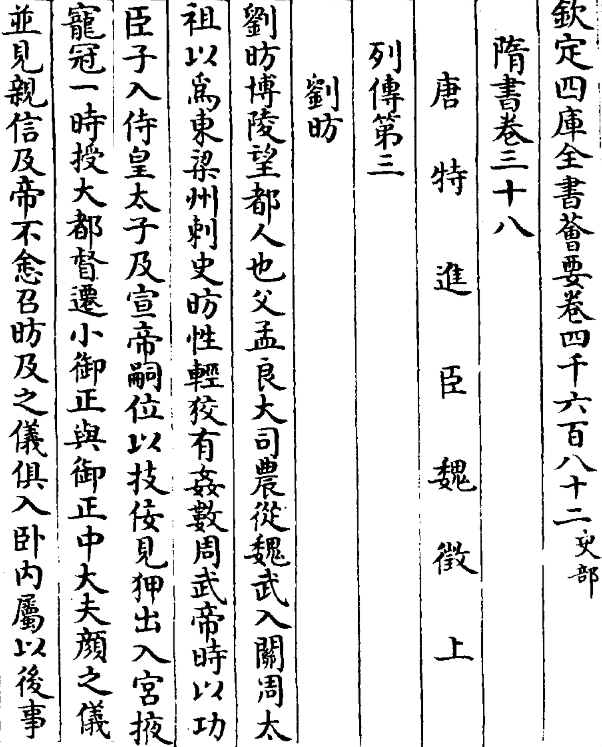 欽定四庫全書薈要卷四千六百八十二史部
隋書卷三十八
唐特進臣魏徵上
列傳第三
劉昉
劉昉博陵望都人也父孟良大司農從魏武入關周太
祖以爲東梁州刺史昉性輕狡有姦數周武帝時以功
臣子入侍皇太子及宣帝嗣位以技佞見狎出入宮掖
寵冠一時授大都督遷小御正與御正中大夫顔之儀
並見親信及帝不悆召昉及之儀俱入卧内屬以後事